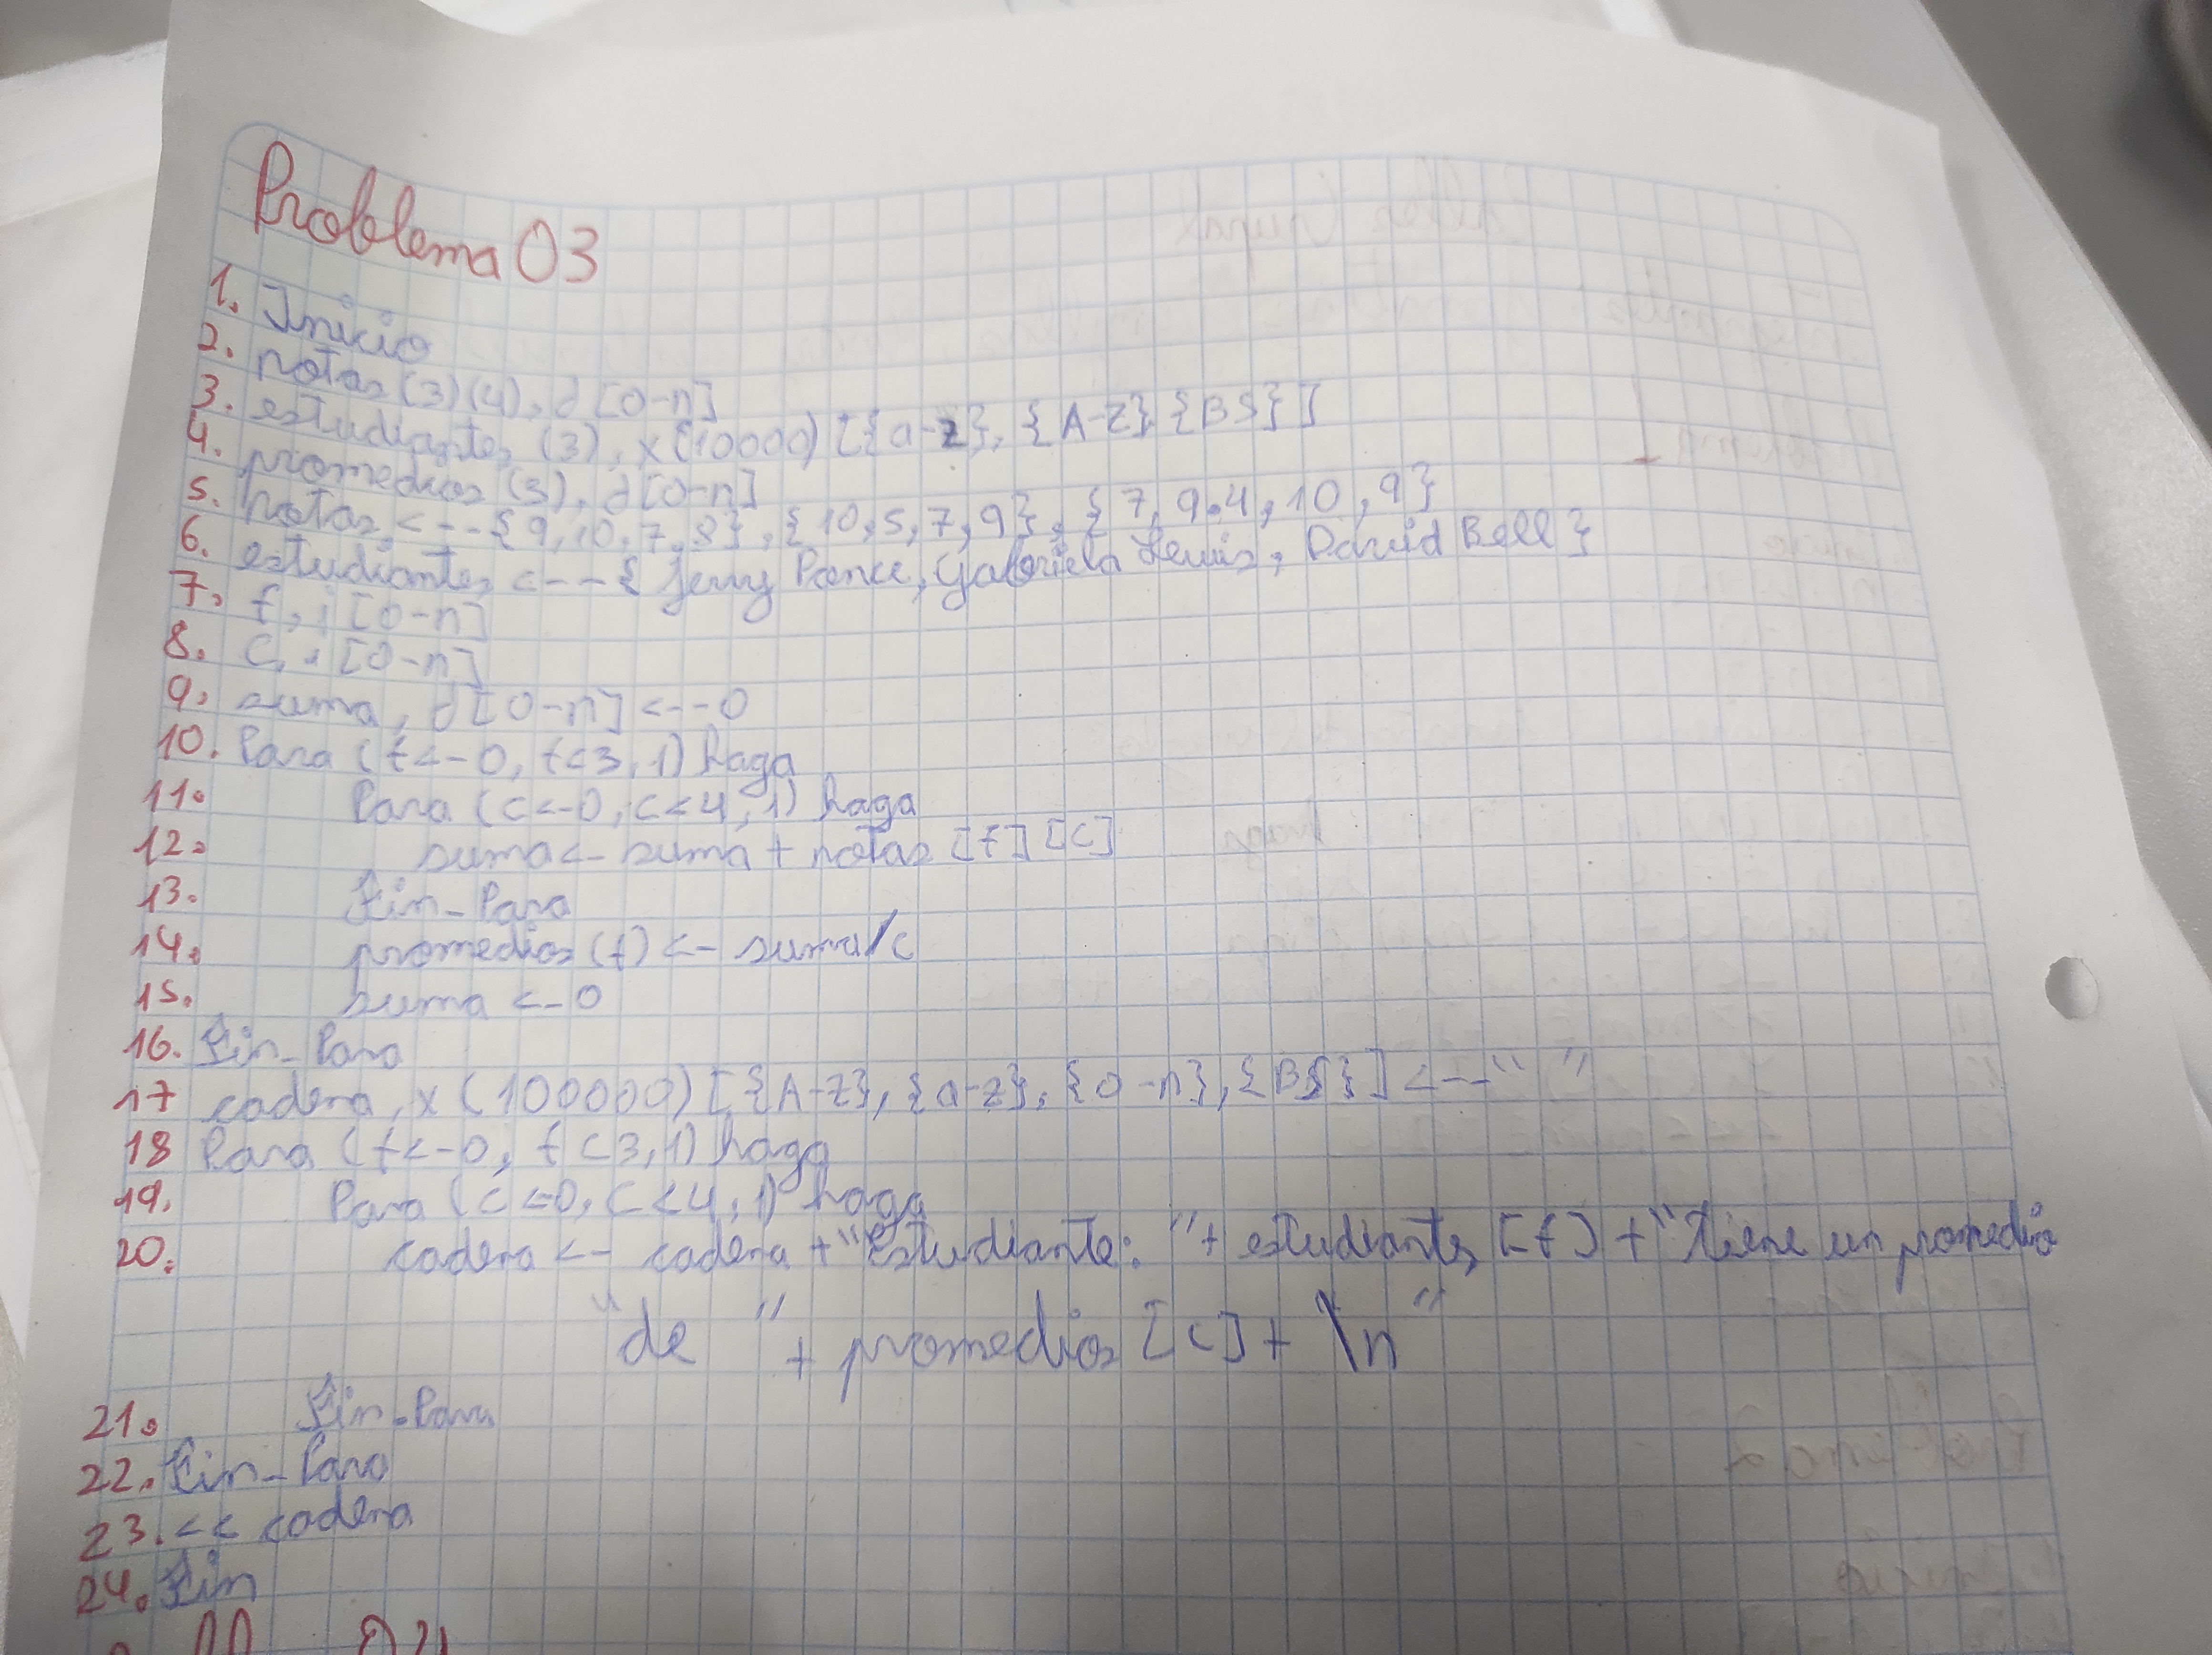 Problema 03
1. Inicio
2. notas (3)(4), d [0-n]
3. estudiantes (3), x (10000) [{a-z}, {A-Z} {BS}]
4. promedios (3), d [0-n]
5. notas <-- {9, 10, 7, 8}, {10, 5, 7, 9}, {7, 9.4, 10, 9}
6. estudiantes <-- { Jerry Ponce, Gabriela Lewis, David Bell }
7. f, i [0-n]
8. c, i [0-n]
9. suma, d [0-n] <-- 0
10. Para (f <- 0, f < 3, 1) haga
11. Para (c <- 0, c < 4, 1) haga
12. suma <- suma + notas [f] [c]
13. Fin-Para
14. promedios (f) <- suma/c
15. suma <- 0
16. Fin-Para
17 cadena, x (100000) [{A-Z}, {a-z}, {0-n}, {BS}] <-- " "
18 Para (f <- 0, f < 3, 1) haga
19. Para (c <- 0, c < 4, 1) haga
20. cadena <- cadena + "Estudiante: " + estudiantes [f] + "tiene un promedio
"de " + promedios [c] + \n"
21. Fin-Para
22. Fin-Para
23. << cadena
24. Fin